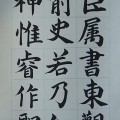 臣属書東觀
前史若乃
神惟睿作聖